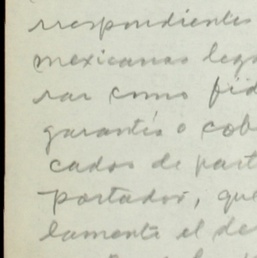 rrespondientes
mexicanas lega
rar como fid
garantís o cob
cados de part
portador, que
lamente el de